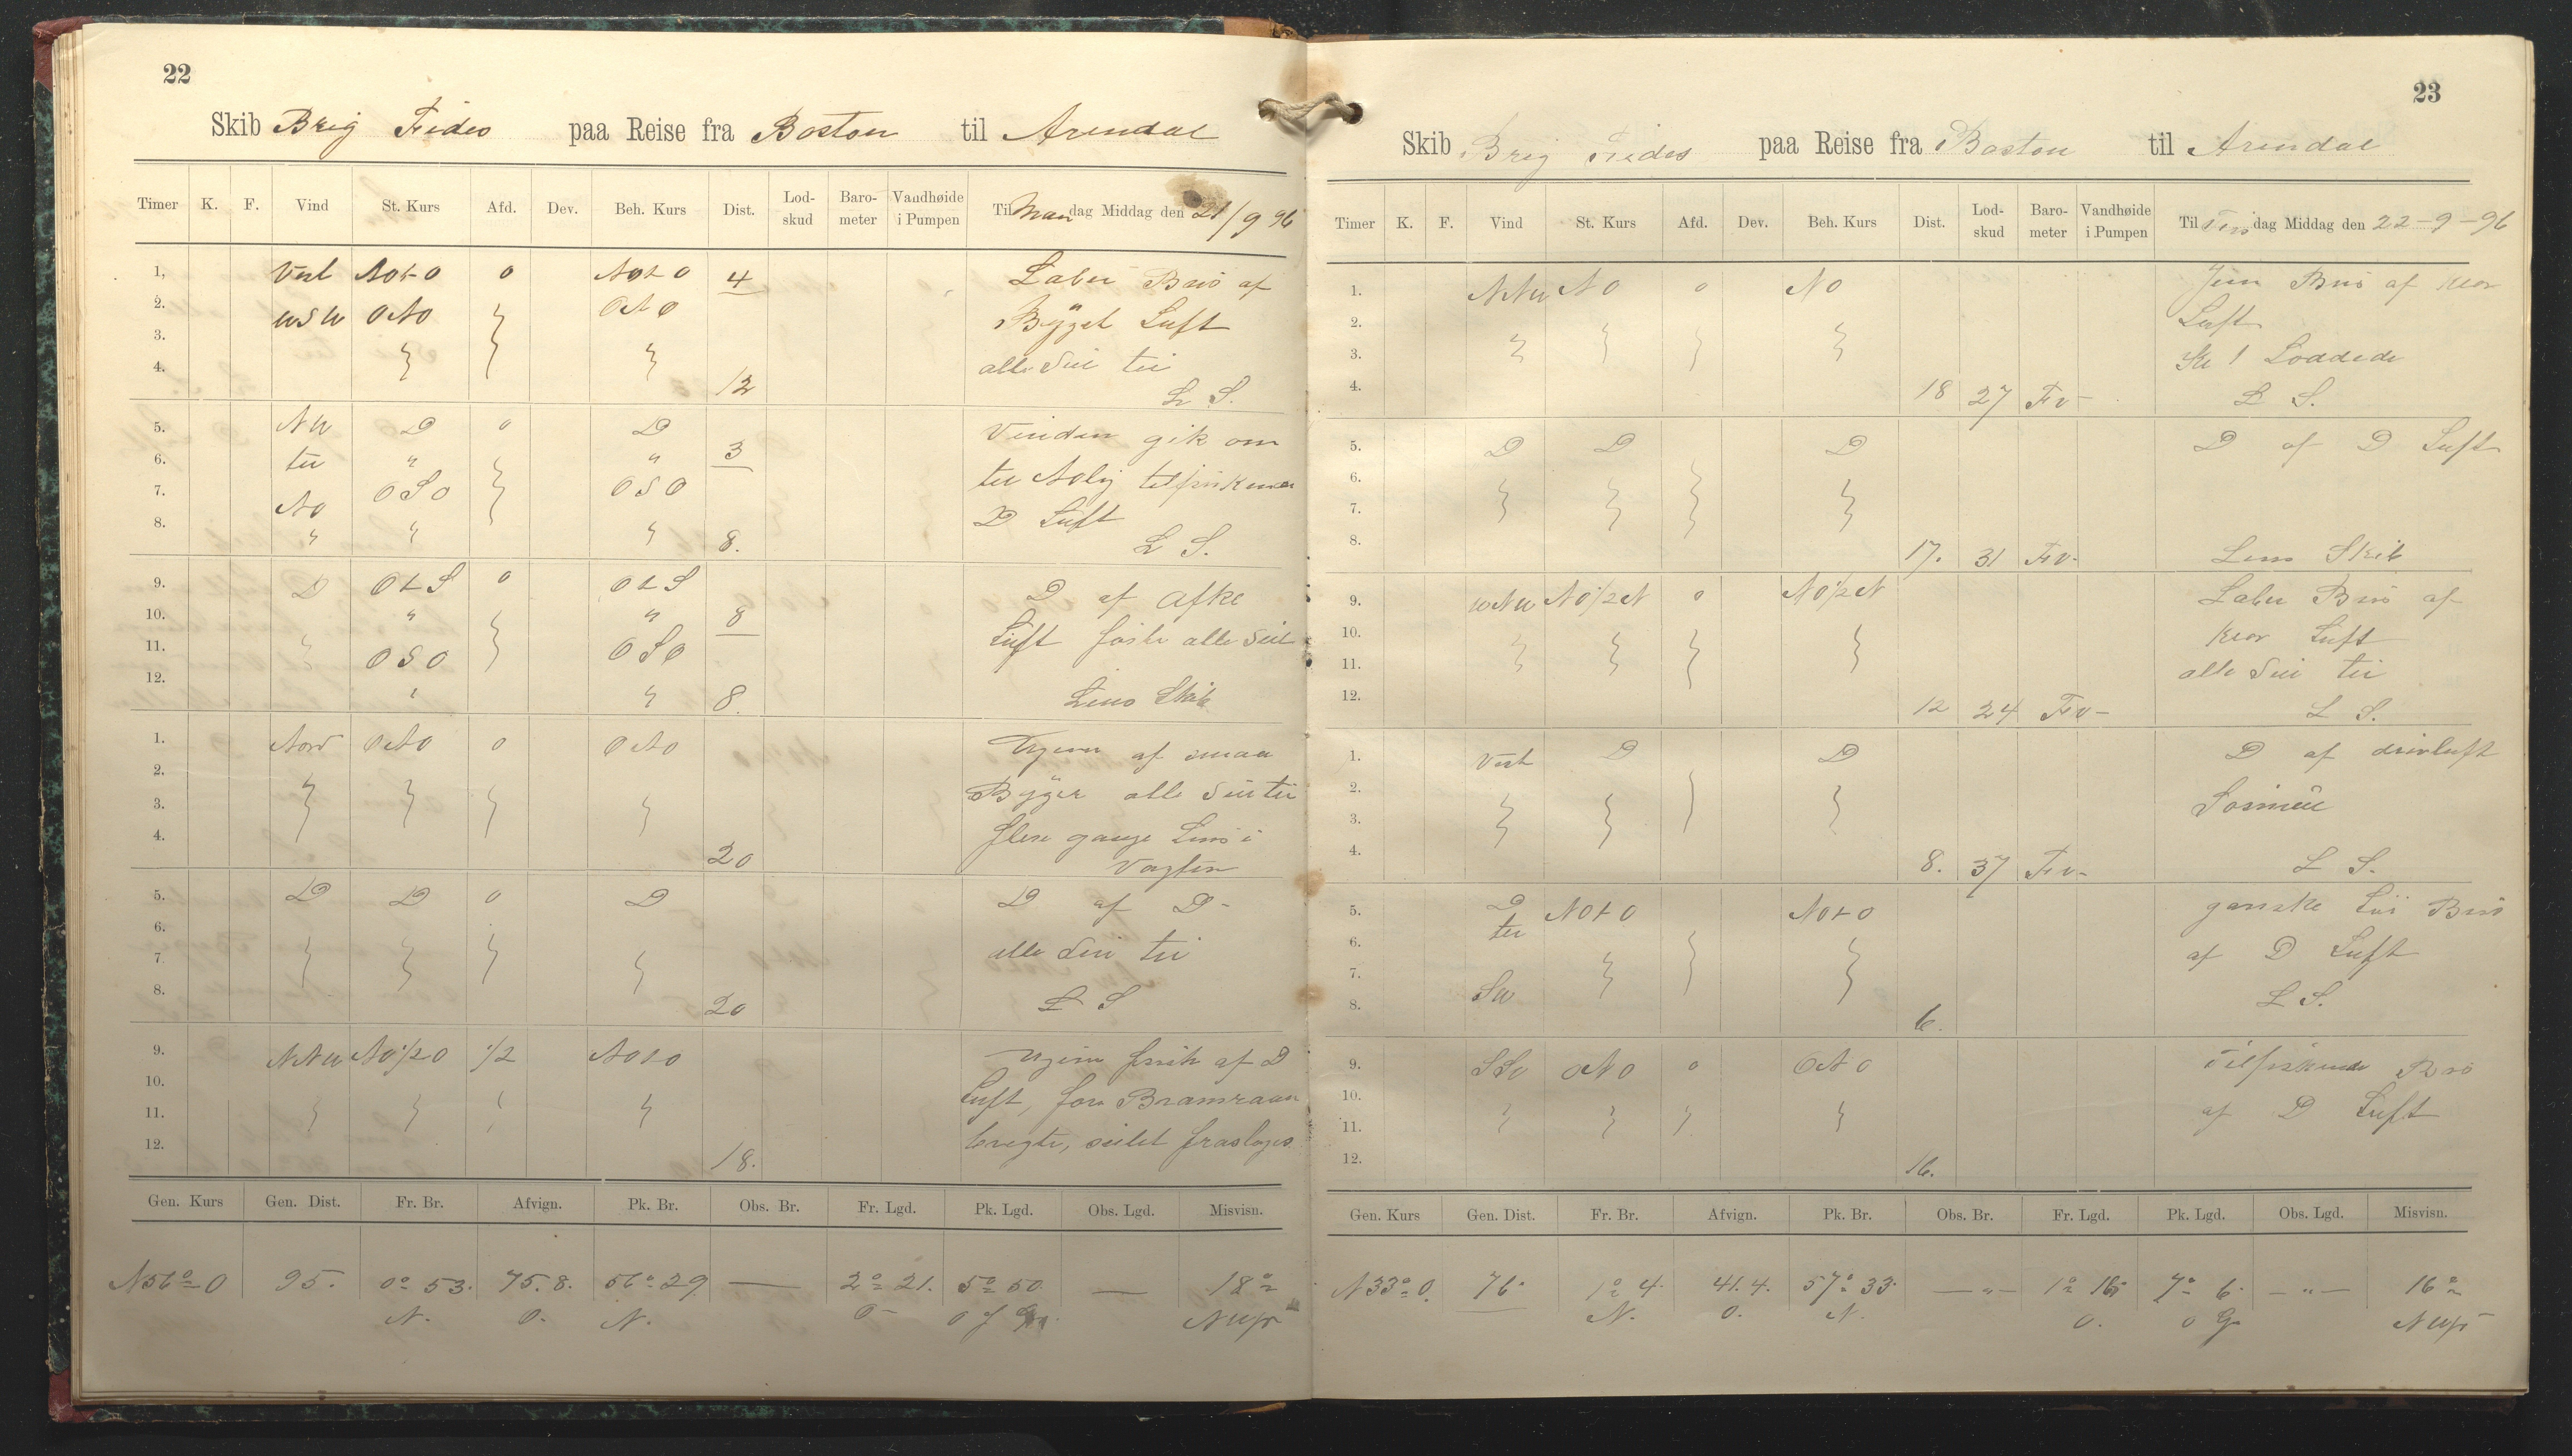 22
Skib Brig Fides paa Reise fra Boston til Arendal
Timer K. F. Vind St. Kurs Afd. Dev. Beh. Kurs Dist. Lod-skud Baro-meter Vandhøide i Pumpen Til Mandag Middag den 21/9 96
1, Vest NOtO 0 NOtO 4 Laber Bris af
2. WSW ONO ONO Bÿget Luft
3. alle Seil til
4. 12 L S.
5. NW D 0 D 3 Vinden gik om
6. til " " til Nolig
7. NO OSO OSO D Luft
8. " " " 8. L S.
9. D OtS 0 OtS D af
10. " " 8 Luft alle Seil
11. OSO OSO
12. " " 8. Lens Skib
1. Nord ONO 0 ONO af smaa
2. Byger alle Seil til
3. flere gange Lens i
4. 20 Vagten
5. D D 0 D D af D-
6. alle Seil til
7.
8. 20 L S
9. NNW NO1/2O 1/2 NOtO frisk af D
10. Luft, for Bramraaen
11. seilet
12. 18.
Gen. Kurs Gen. Dist. Fr. Br. Afvign. Pk. Br. Obs. Br. Fr. Lgd. Pk. Lgd. Obs. Lgd. Misvisn.
N56°O 95. 0° 53. 75.8. 56° 29 — 2° 21. 5° 50. — 18°
N. O. N. O- O f G.
23
Skib Brig Fides paa Reise fra Boston til Arendal
Timer K. F. Vind St. Kurs Afd. Dev. Beh. Kurs Dist. Lod-skud Baro-meter Vandhøide i Pumpen Til Tirsdag Middag den 22-9-96
1. NNW NO 0 NO Jevn Bris af klar
2. Luft
3. Kl 1 Loddede
4. 18 27 Fv- L S.
5. D D D D af D Luft
6.
7.
8. 17. 31 Fv- Lens Skib
9. WNW NO1/2N 0 NO1/2N Laber Bris af
10. klar Luft
11. alle Seil til
12. 12 24 Fv- L S.
1. Vest D D D af drivluft
2.
3.
4. 8. 37 Fv- L S.
5. D NOtO NOtO ganske Bris
6. til af D Luft
7. SW L S.
8. 6.
9. ONO 0 ONO Bris
10. af D Luft
11.
12. 16.
Gen. Kurs Gen. Dist. Fr. Br. Afvign. Pk. Br. Obs. Br. Fr. Lgd. Pk. Lgd. Obs. Lgd. Misvisn.
N33°O. 76. 1° 4. 41.4. 57° 33. — " — 1° 16. 7° 6. — " — 16°
N. O. N. O. O G.